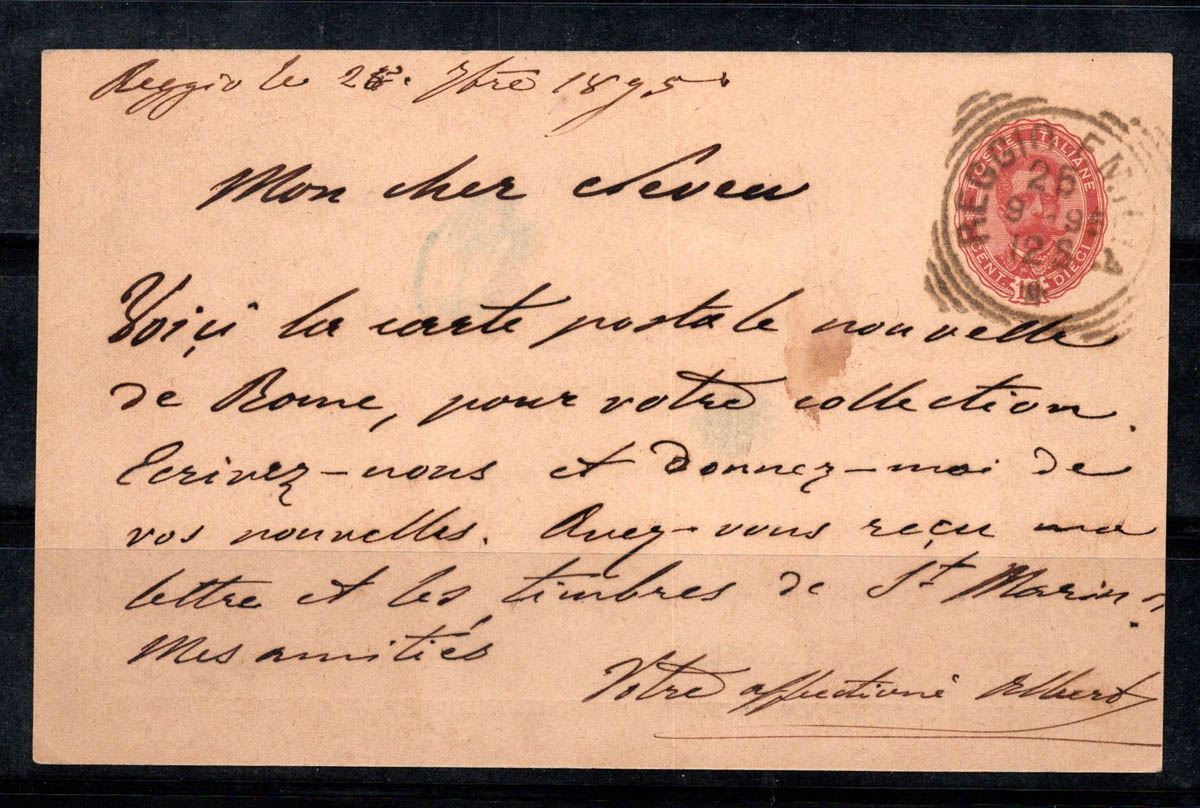 Reggio le 26. 7bre 1895.
Mon cher Neveu
Voiçi la carte postale nouvelle
de Rome, pour votre collection.
Ecrivez-nous et donnez-moi de
vos nouvelles. Avez-vous reçu ma
lettre et les timbres de St Marin
Mes amitiés
Votre affectioné Albert
POSTE ITALIANE
CENT. 10 DIECI
REGGIO EMILIA
26
9
12 S